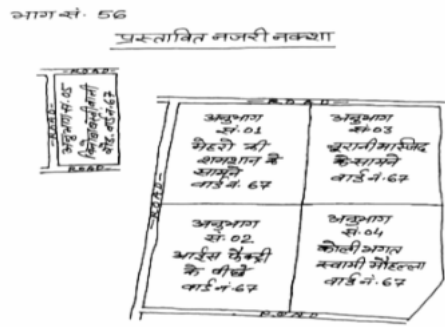 भाग सं. 56
प्रस्तावित नजरी नक्शा
-ROAD-
-ROAD-
अनुभाग सं. 05
वार्ड नं. 67
ROAD-
-ROAD-
-ROAD-
अनुभाग
सं. 01
मेहरो की
शमशान के
सामने
वार्ड नं. 67
अनुभाग
सं. 03
पुरानी मस्जिद
के सामने
वार्ड नं. 67
अनुभाग
सं. 02
आईस फैक्ट्री
के पीछे
वार्ड नं. 67
अनुभाग
सं. 04
कोली भगत
स्वामी मौहल्ला
वार्ड नं. 67
ROAD-